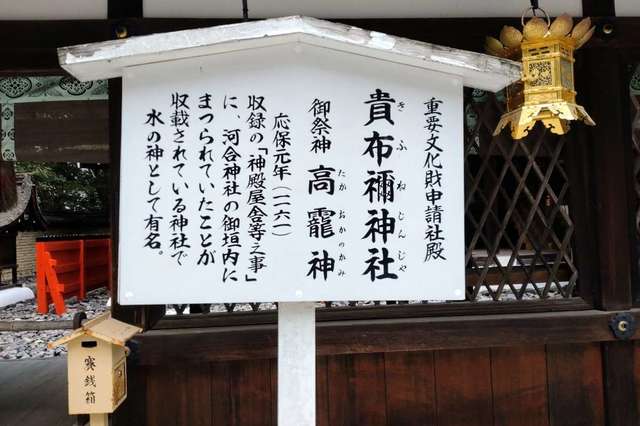 重要文化財申請社殿
貴布禰神社
きふねじんじゃ
御祭神 高靇神
たかおかのかみ
応保元年（一一六一）
収録の「神殿屋舎等之事」
に、河合神社の御垣内に
まつられていたことが
収載されている神社で
水の神として有名。
賽銭箱